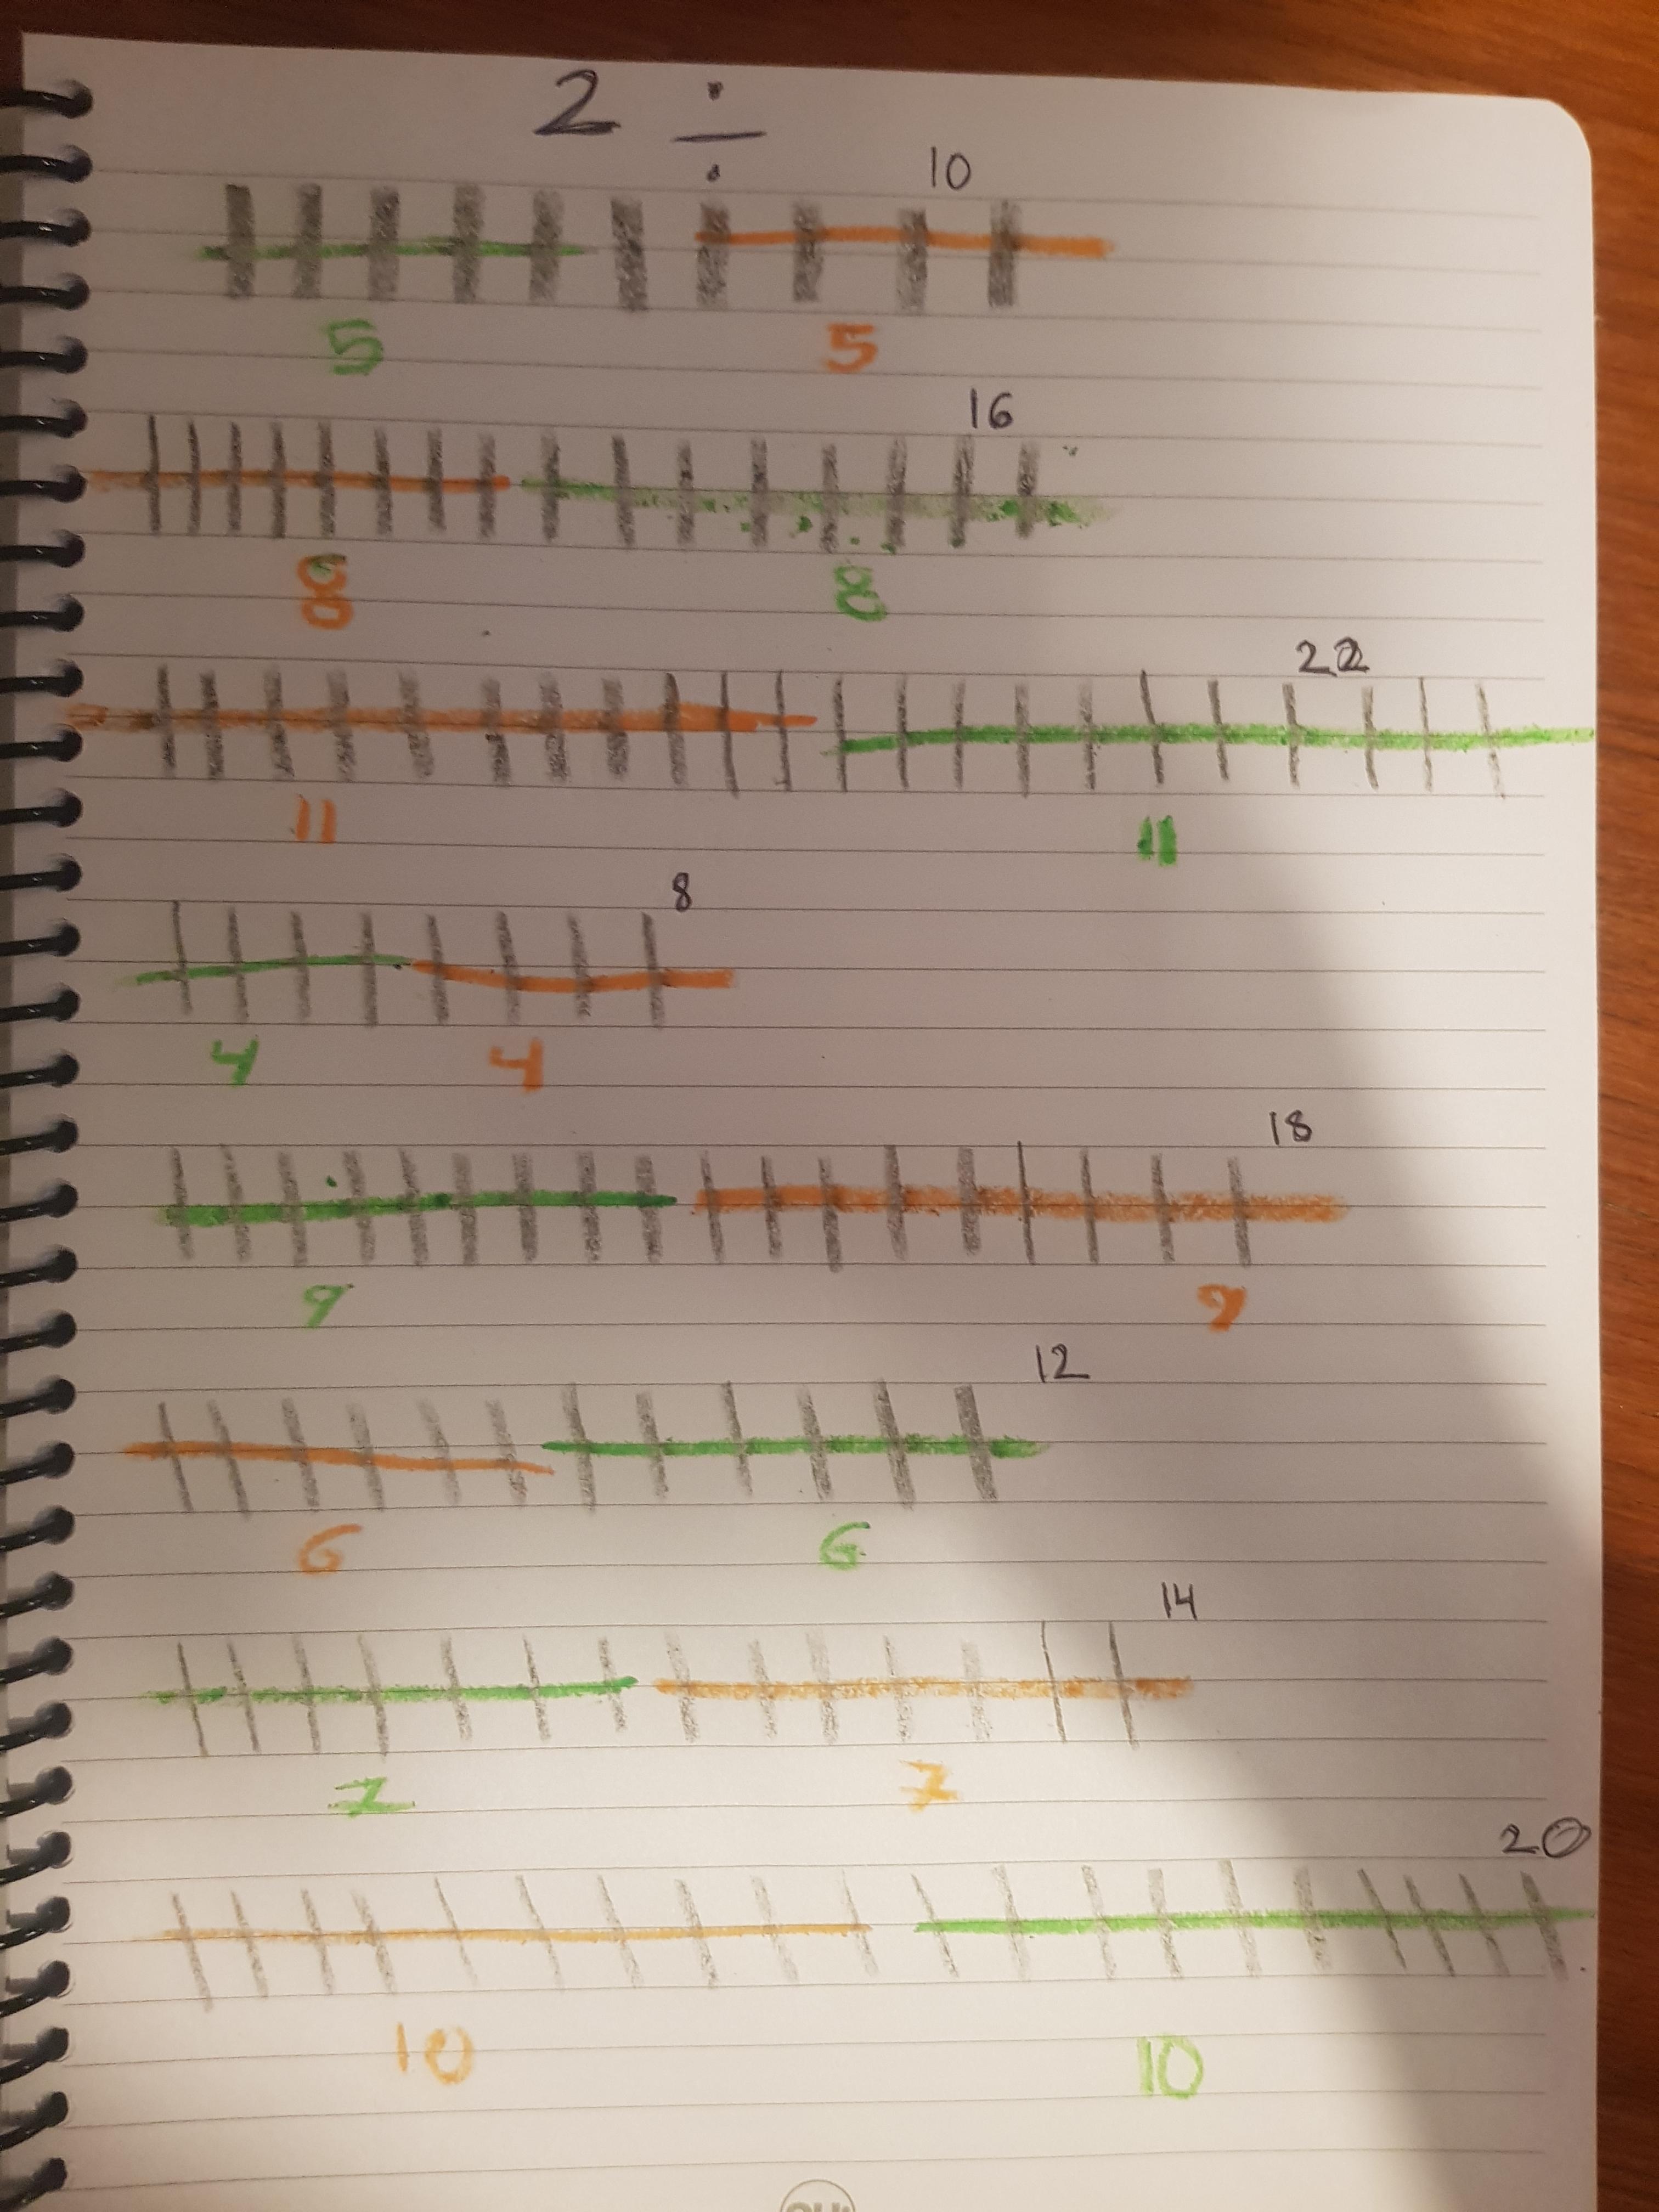 2 ÷
10
5 5
16
8 8
22
11 11
8
4 4
18
9 9
12
6 6
14
7 7
20
10 10